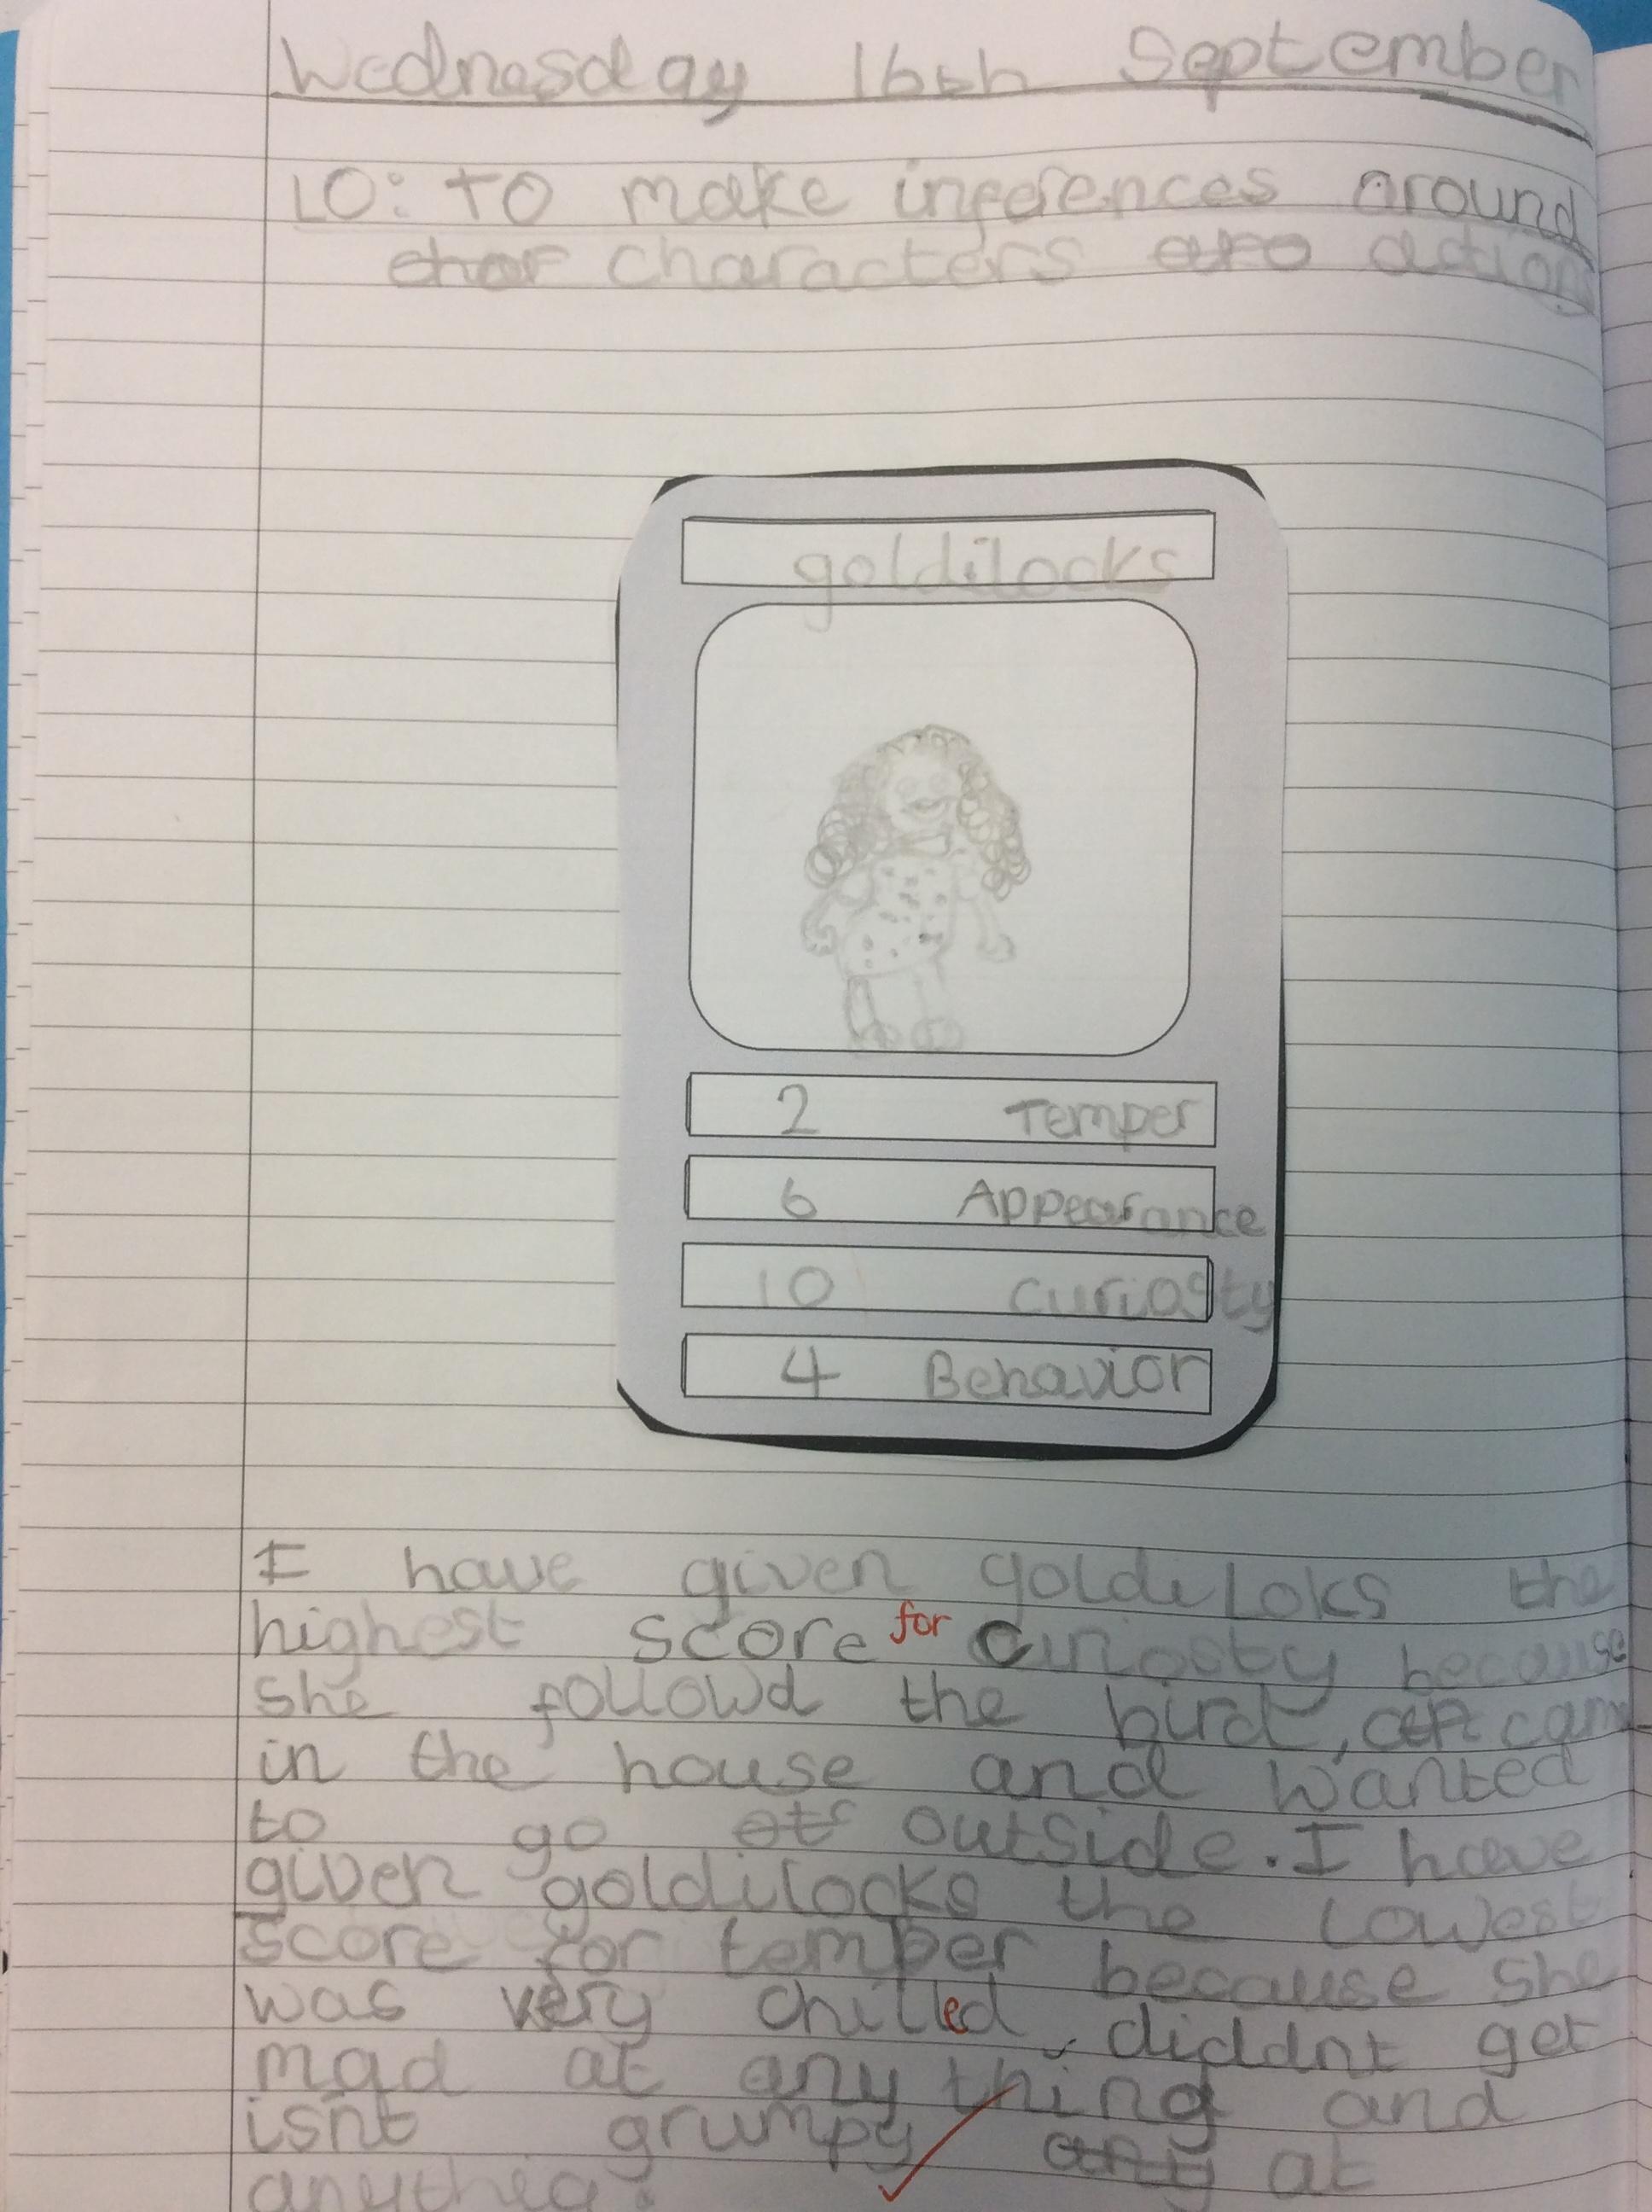 Wednesday 16th September
LO: To make inferences around
char characters aro actions
goldilocks
2 Temper
6 Appearance
10 curiosty
4 Behavior
I have given goldiloks the
highest score for curiosty because
she followd the bird, came
in the house and wanted
to go outside. I have
given goldilocks the lowest
score for temper because she
was very chilled, diddnt get
mad at any thing and
isnt grumpy any at
anythig.